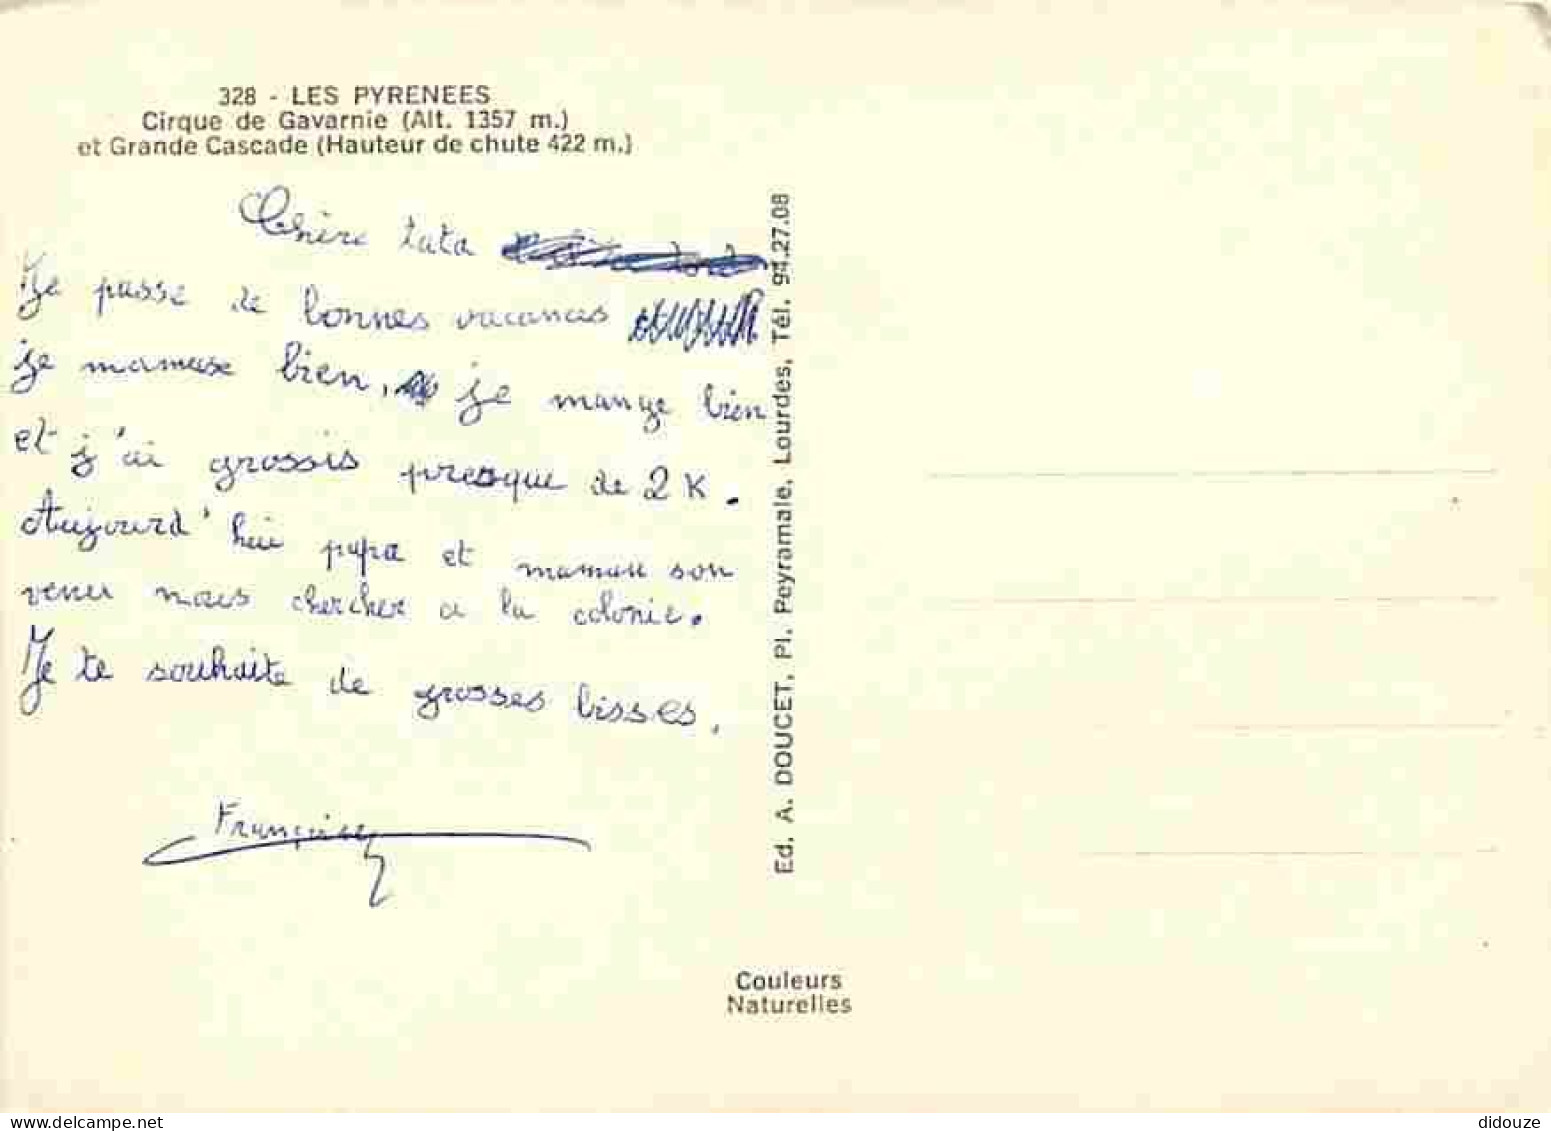 328 - LES PYRENEES
Cirque de Gavarnie (Alt. 1357 m.)
et Grande Cascade (Hauteur de chute 422 m.)
Chère tata
Je passe de bonnes vacances
je mamuse bien, je mange bien
et j'ai grossis presque de 2 K.
Aujourd'hui papa et maman son
venu nous chercher a la colonie.
Je te souhaite de grosses bisses.
Françoise
Ed. A. DOUCET, Pl. Peyramale, Lourdes, Tél. 94.27.08
Couleurs
Naturelles
delcampe.net
didouze